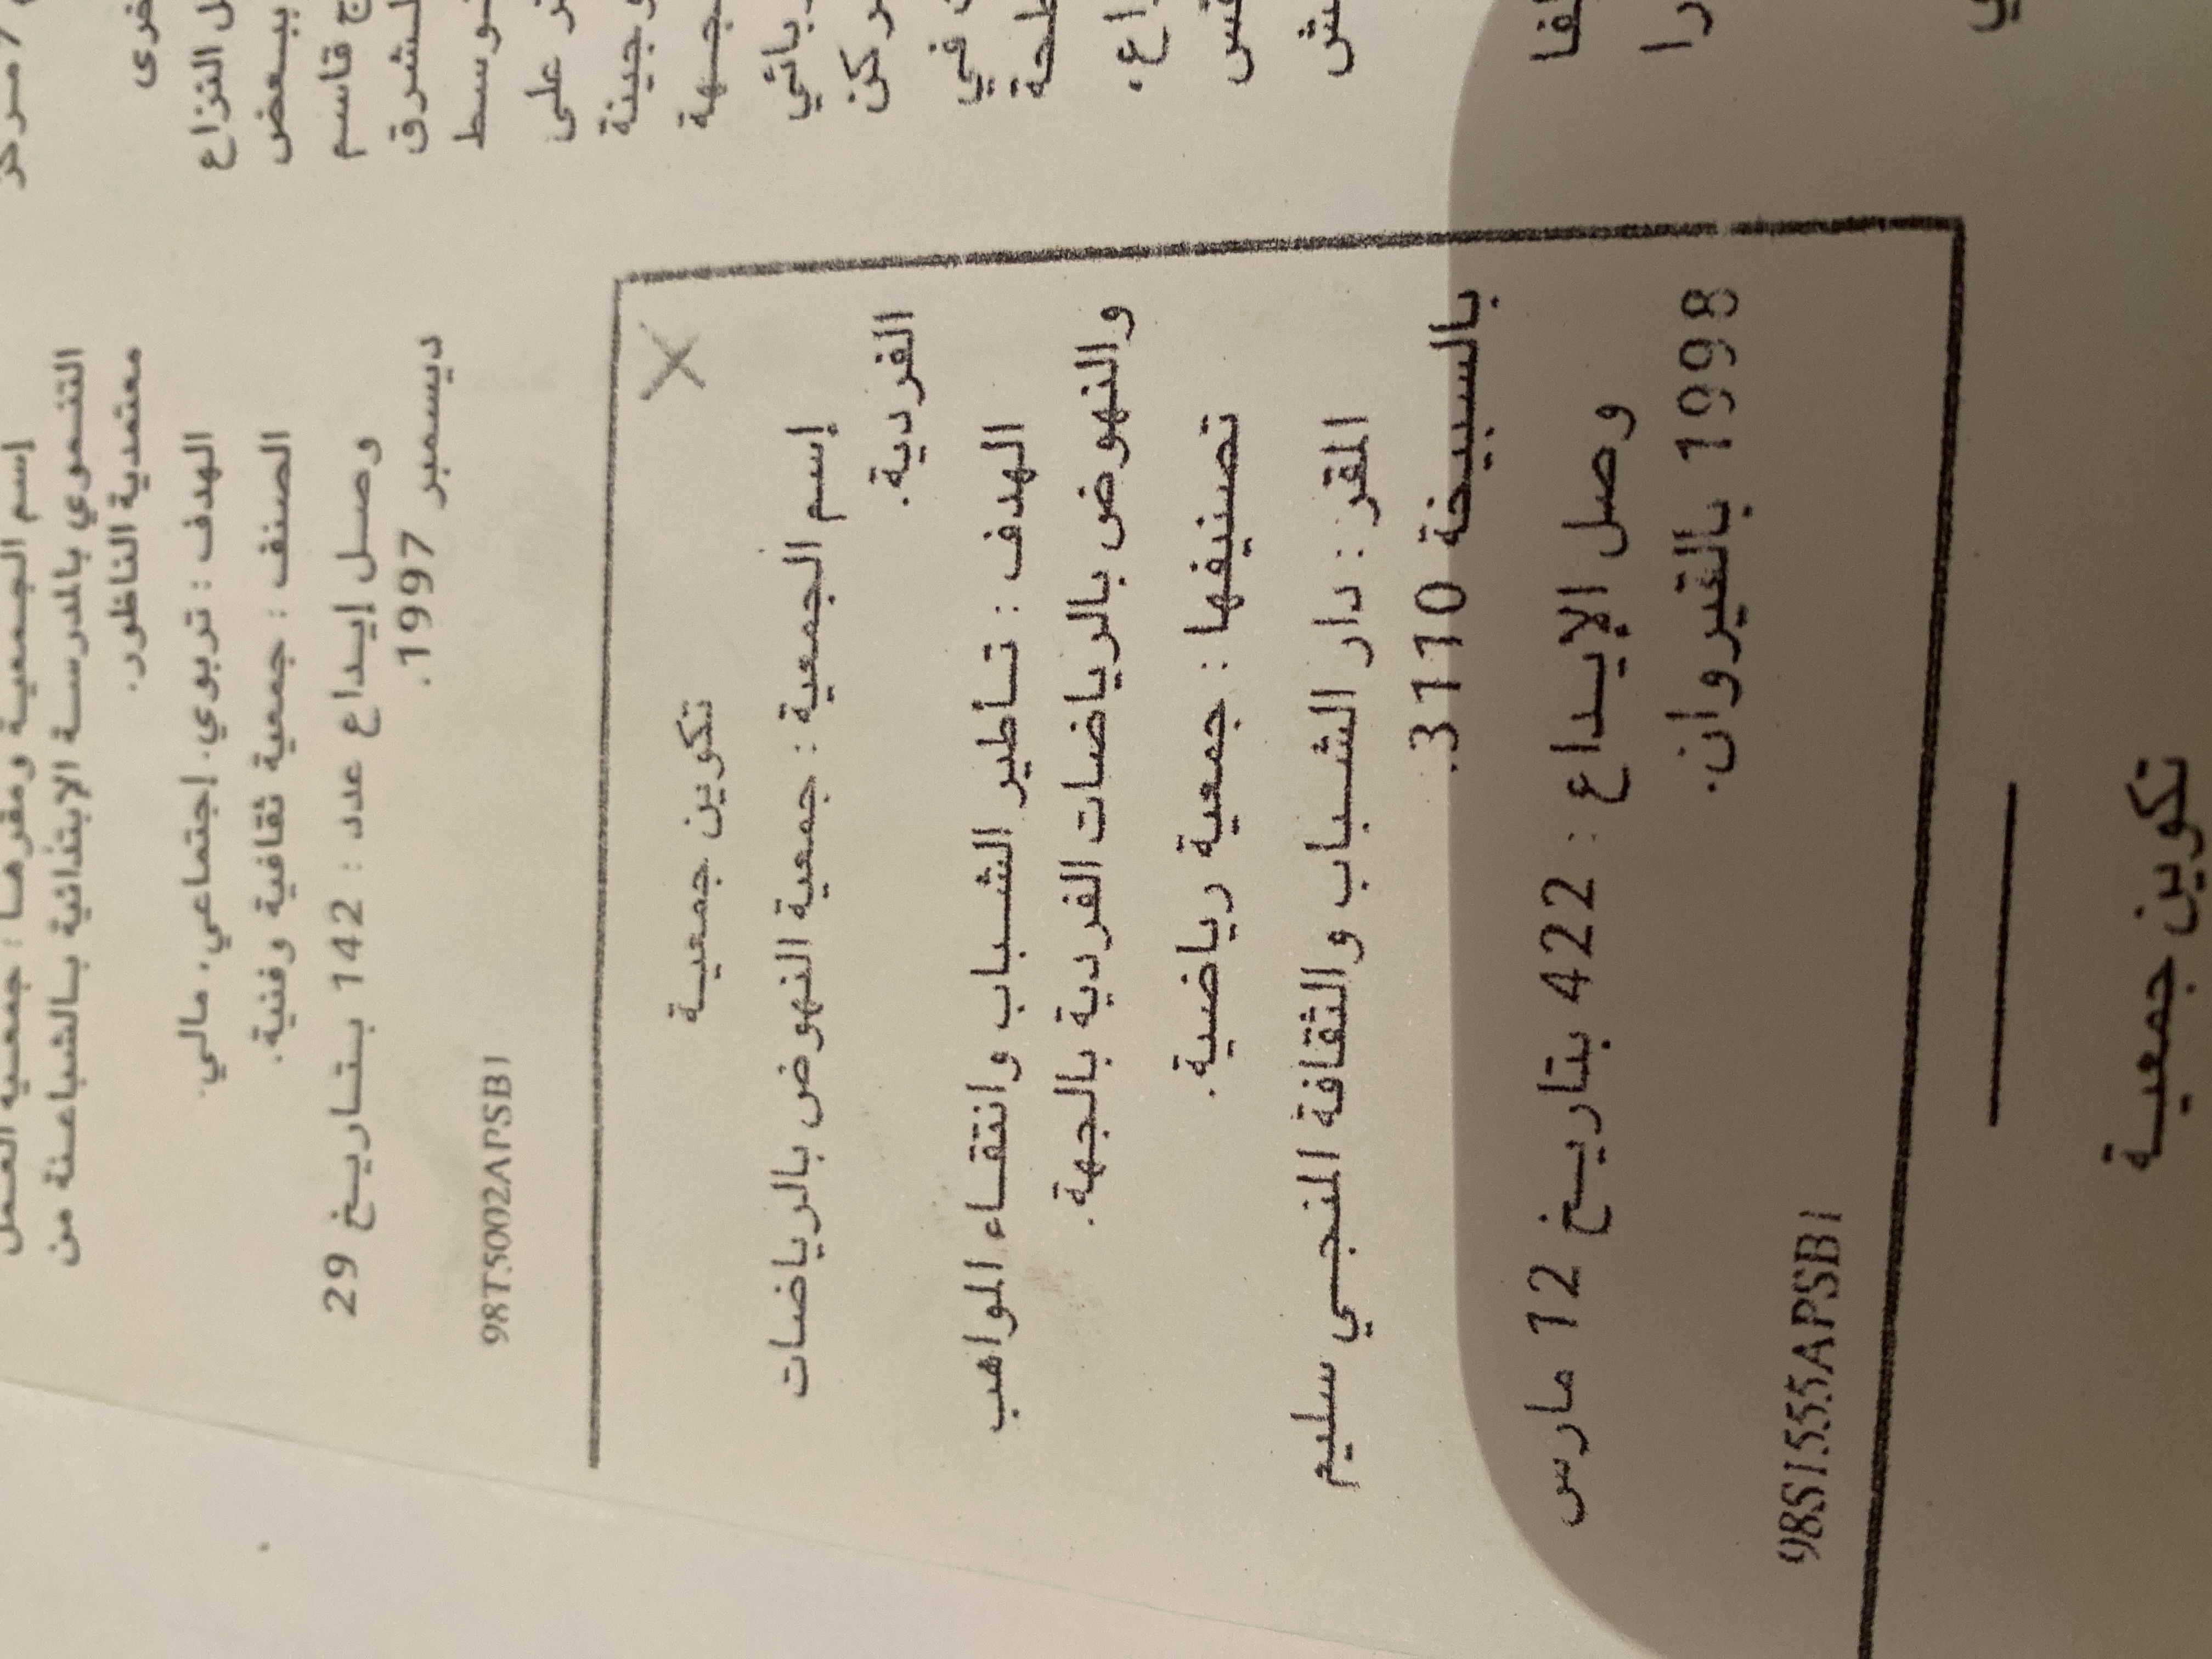 إسم الجمعية ومقرها : جمعية العمل
التنموي بالمدرسة الإبتدائية بالشباعنة من
معتمدية الناظور.
الهدف : تربوي، إجتماعي، مالي.
الصنف : جمعية ثقافية وفنية.
وصل إيداع عدد : 142 بتاريخ 29
ديسمبر 1997.
98T5002APSB1
X
تكوين جمعية
إسم الجمعية : جمعية النهوض بالرياضات
الفردية.
الهدف : تأطير الشباب وانتقاء المواهب
والنهوض بالرياضات الفردية بالجهة.
تصنيفها : جمعية رياضية.
المقر : دار الشباب والثقافة المنجي سليم
بالسبيخة 3110.
وصل الإيداع : 422 بتاريخ 12 مارس
1998 بالقيروان.
98S1555APSB1
تكوين جمعية
مركز
ل النزاع
ج قاسم
ببعض
على
جهة
في